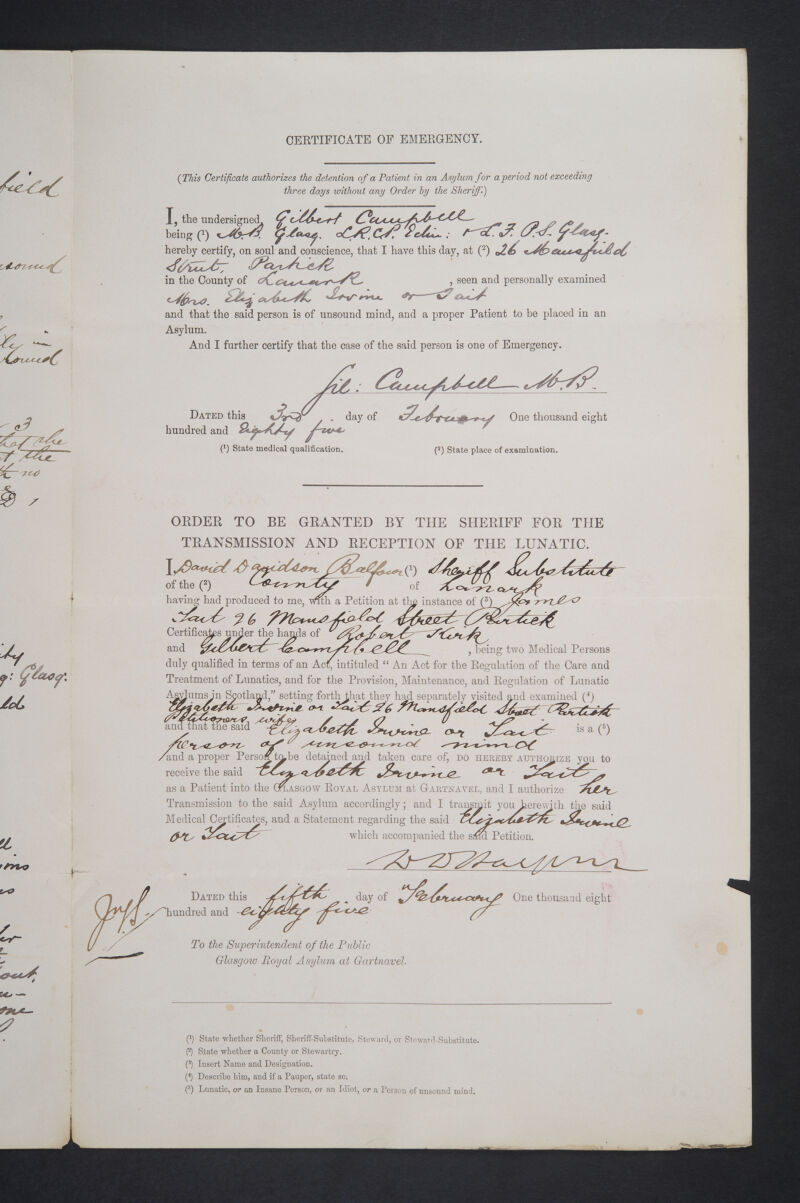 field
sound
ly in
found
3
that she
t the
th no
g: Glasg.
lds
out,
me
CERTIFICATE OF EMERGENCY.
(This Certificate authorizes the detention of a Patient in an Asylum for a period not exceeding
three days without any Order by the Sheriff.)
I, the undersigned, Gilbert Campbell
being (¹) M.B. Glasg. L.R.C.P. Edin: & L.F.P.S. Glasg.
hereby certify, on soul and conscience, that I have this day, at (²) 26 Mansfield
Street, Partick
in the County of Lanark , seen and personally examined
Mrs. Elizabeth Irvine or Tait
and that the said person is of unsound mind, and a proper Patient to be placed in an
Asylum.
And I further certify that the case of the said person is one of Emergency.
Gil: Campbell M.B.
DATED this 3rd day of February One thousand eight
hundred and Eighty five
(¹) State medical qualification. (²) State place of examination.
ORDER TO BE GRANTED BY THE SHERIFF FOR THE
TRANSMISSION AND RECEPTION OF THE LUNATIC.
I David Davidson Balfour (¹) Sheriff Substitute
of the (²) County of Lanark
having had produced to me, with a Petition at the instance of (³) James
Tait 26 Mansfield Street Partick
Certificates under the hands of Robert Kirk
and Gilbert Campbell , being two Medical Persons
duly qualified in terms of an Act, intituled “ An Act for the Regulation of the Care and
Treatment of Lunatics, and for the Provision, Maintenance, and Regulation of Lunatic
Asylums in Scotland,” setting forth that they had separately visited and examined (⁴)
Elizabeth Irvine or Tait 26 Mansfield Street Partick
Petitioners wife
and that the said Elizabeth Irvine or Tait is a (⁵)
person of unsound mind
and a proper Person to be detained and taken care of, DO HEREBY AUTHORIZE you to
receive the said Elizabeth Irvine or Tait
as a Patient into the GLASGOW ROYAL ASYLUM at GARTNAVEL, and I authorize her
Transmission to the said Asylum accordingly; and I transmit you herewith the said
Medical Certificates, and a Statement regarding the said Elizabeth Irvine
or Tait which accompanied the said Petition.
D D Balfour
DATED this fifth day of February One thousand eight
hundred and eighty five
To the Superintendent of the Public
Glasgow Royal Asylum at Gartnavel.
(¹) State whether Sheriff, Sheriff-Substitute, Steward, or Steward-Substitute.
(²) State whether a County or Stewartry.
(³) Insert Name and Designation.
(⁴) Describe him, and if a Pauper, state so.
(⁵) Lunatic, or an Insane Person, or an Idiot, or a Person of unsound mind.